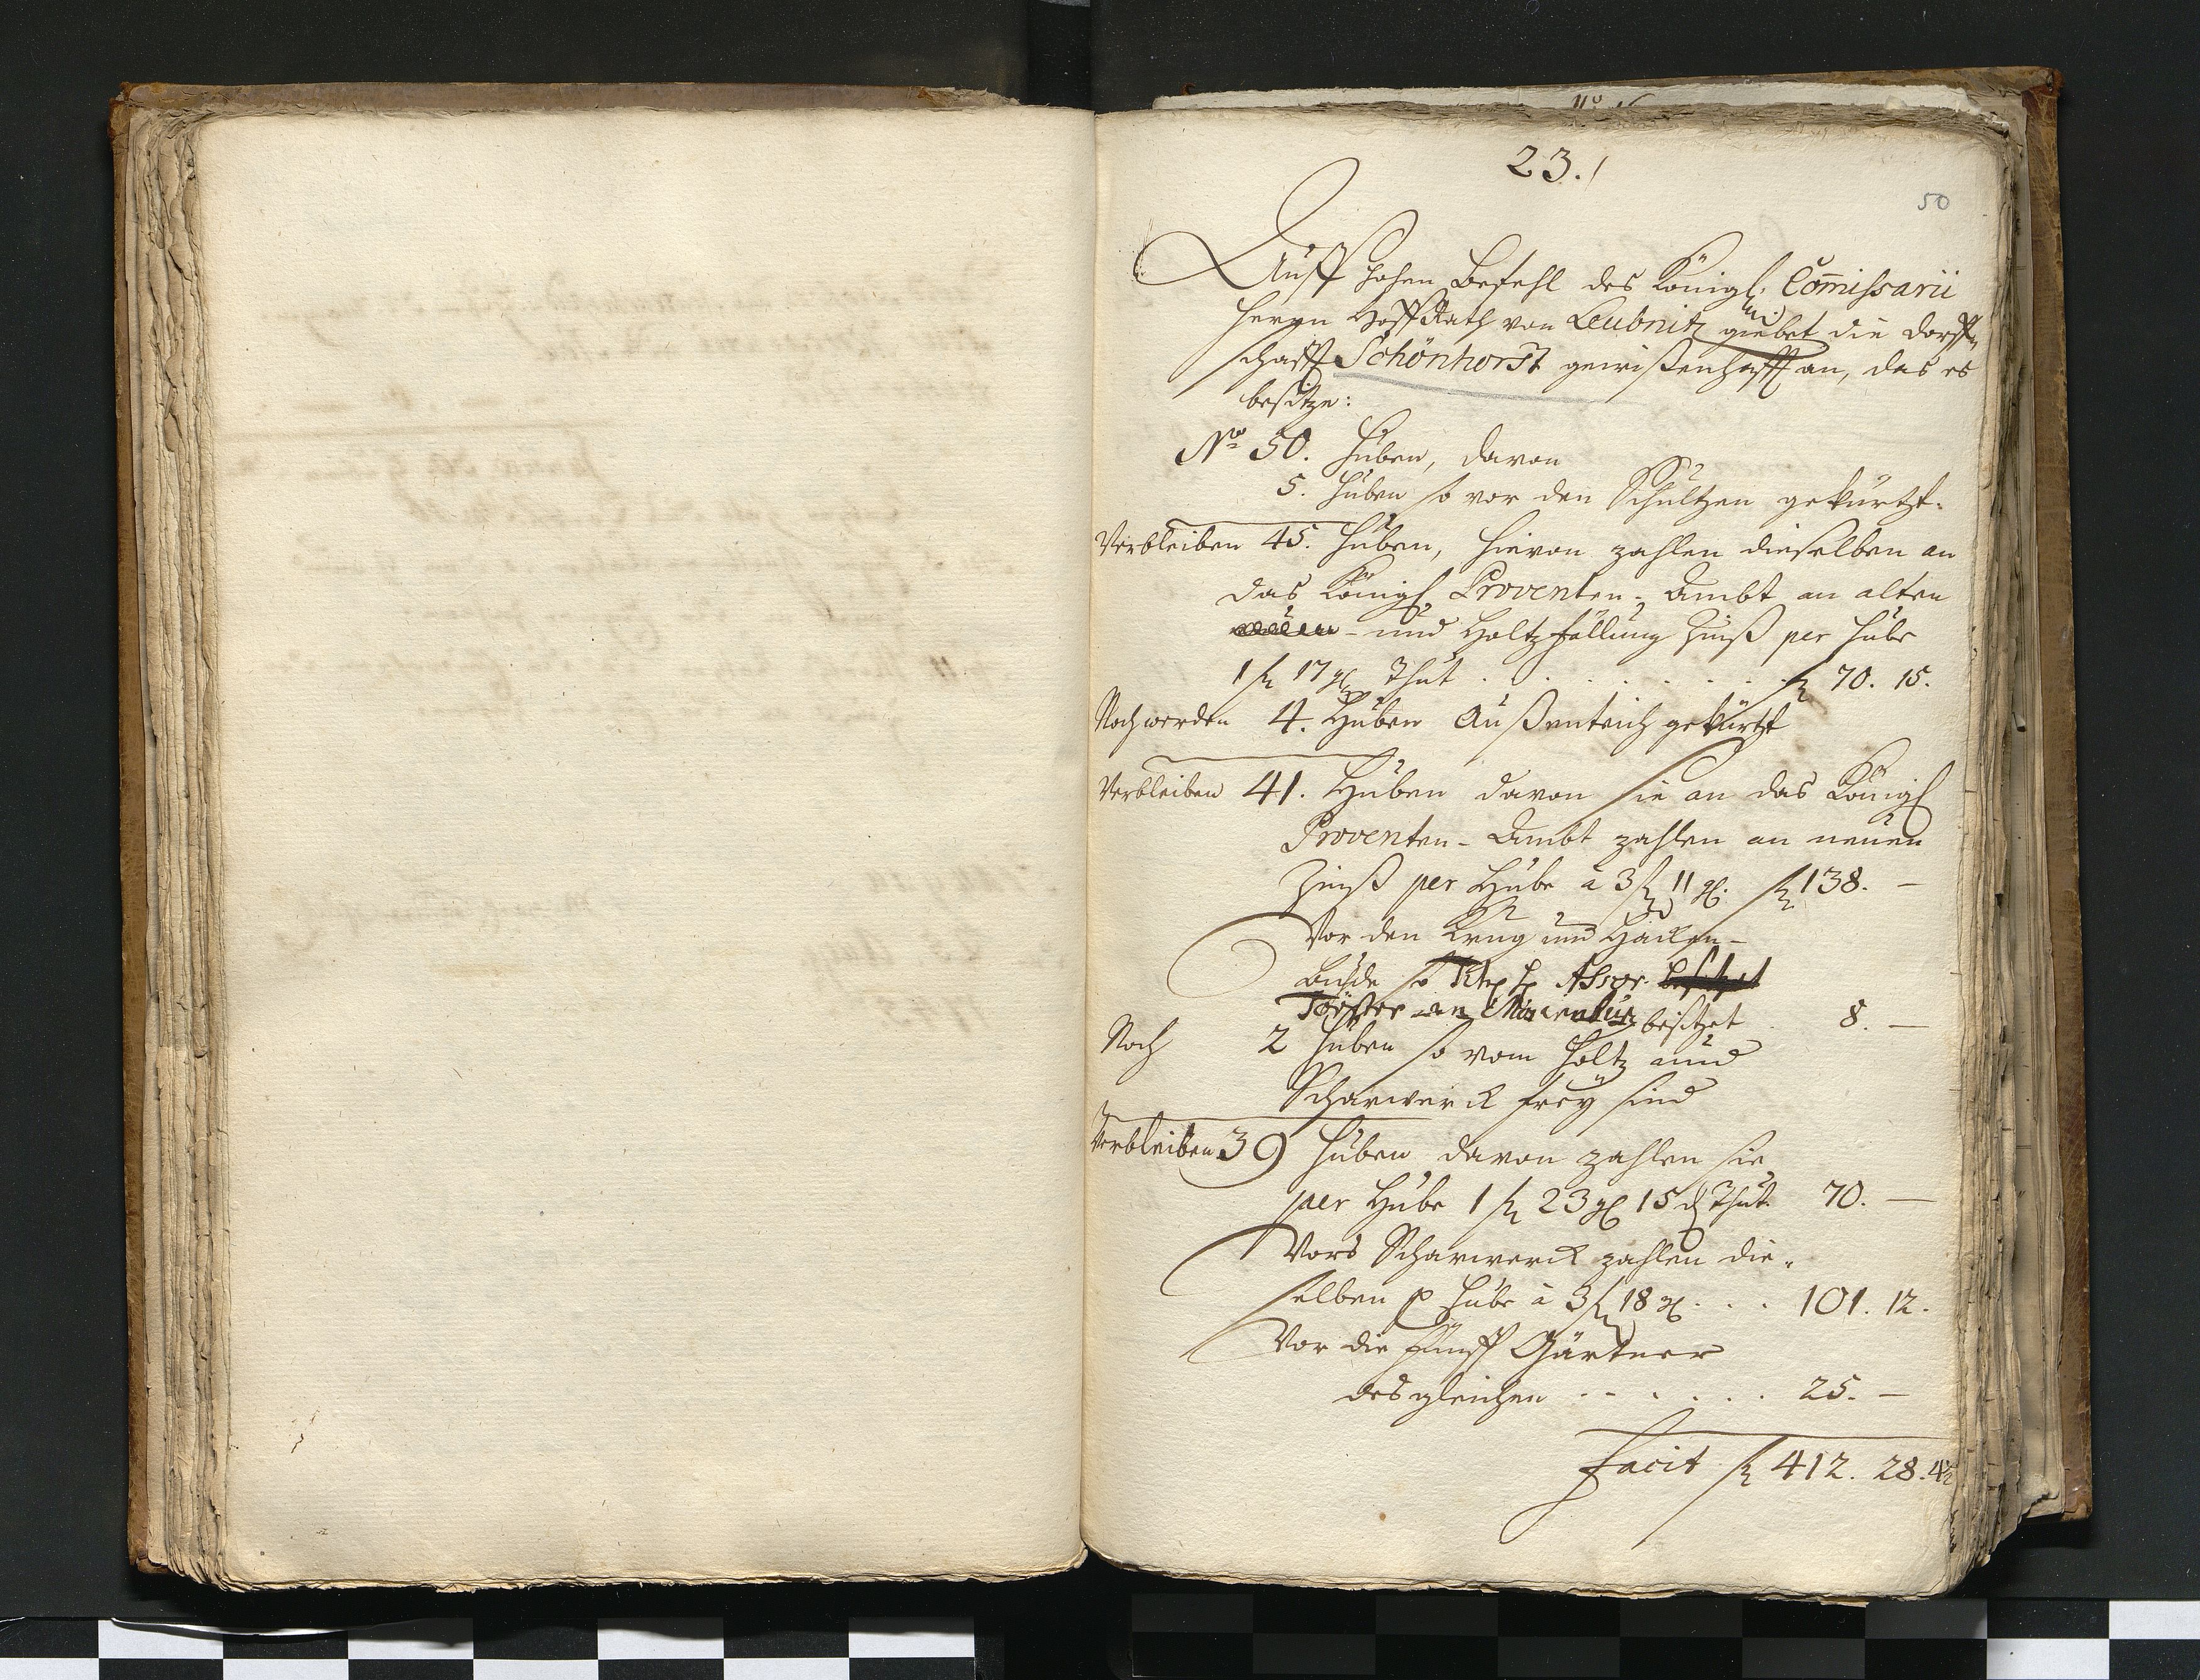 23./
50
Auff hohen Befehl des Königl. Commissarii
Herrn HoffRath von Leubnitz giebet die Dorff-
schafft Schönhorst gewißenhafft an, das es
besitze:
No 50. Huben, davon
5. Huben so vor den Schultzen gekürtzt.
Verbleiben 45. Huben, hievon zahlen dieselben an
das Königl. Proventen-Ambt an alten
und Holtzfällung Zinß per Hube
1 fl 17 gl thut . . . . . . . fl 70. 15.
Noch werden 4. Huben Außenteich gekürtzt
Verbleiben 41. Huben davon sie an das Königl
Proventen-Ambt zahlen an neuen
Zinß per Hube à 3 fl 11 gl. fl 138. —
Vor den Krug und Häcken-
Bude so Assor.
besitzet . 8. —
Noch 2 Huben so vom Holtz und
Scharwerck frey sind
Verbleiben 39 Huben davon zahlen sie
per Hube 1 fl 23 gl 15 d thut 70. —
Vors Scharwerck zahlen die-
selben p Hube à 3 fl 18 gl . . . 101. 12.
Vor die fünff Gärtner
desgleichen . . . . . . 25. —
Facit fl 412. 28.